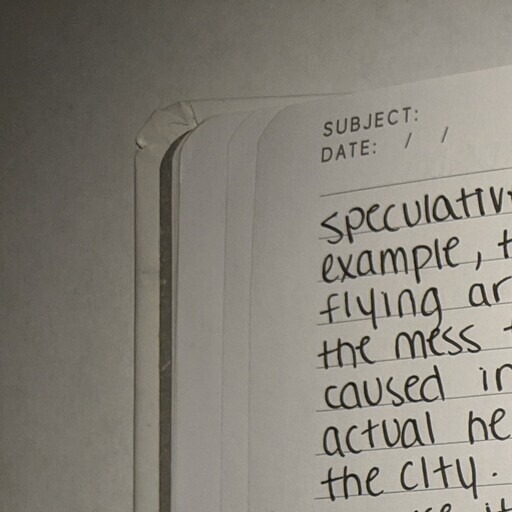 SUBJECT:
DATE: / /
speculativ
example, t
flying ar
the mess
caused in
actual he
the city.
it